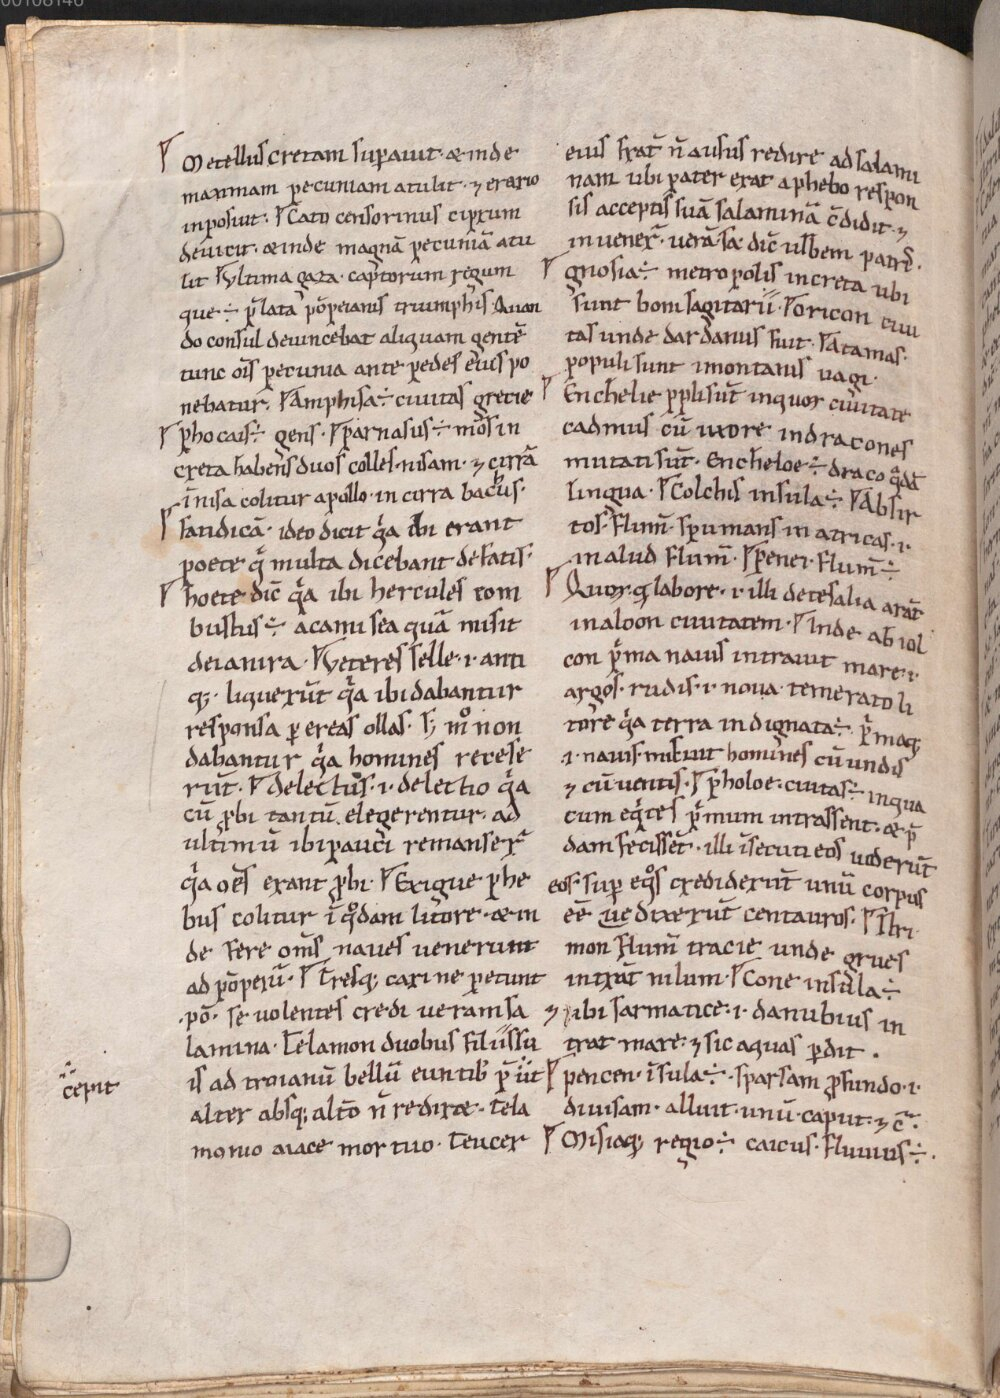 Metellus cretam supauit· & inde
maximam pecuniam atulit· ⁊ erario
inposuit· Cato censorinus ciprum
deuicit· & inde magnā pecuniā atu
lit Vltima gaza· captorum regum
que ÷ p̄lata pōpeianis triumphis Quan
do consul deuincebat aliquam gentē
tunc oīs pecunia ante pedes eius po
nebatur· Amphisa ÷ ciuitas grecie
phocais ÷ gens· parnasus ÷ mōs in
creta habens duos colles· nisam· ⁊ cirrā
in nisa colitur apollo· in cirra bacus·
fatidicā· ideo dicit q̄a ibi erant
poete q̄ multa dicebant de fatis·
hoete dic̄ q̄a ibi hercules com
bustus ÷ a camisea quā misit
deianira· Veteres selle· i· anti
q;· liquerūt q̄a ibi dabantur
responsa p ereas ollas· S; m̊ non
dabantur q̄a homines recese
rūt· delectus· i· delectio q̄a
cū p̄bi tantū elegerentur· ad
ultimū ibi pauci remanser̄
q̄a oēs erant p̄bi· Exigue phe
bus colitur ī q̊dam litore· & in
de fere om̄s naues uenerunt
ad pōpeiū· Tresq; carine petunt
·pō· se uolentes credi ueram sa
lamina· Telamon duobus filiis su
is ad troianū bellū euntib; p̄
alter absq; alt̄o n̄ redir&· tela
monio aiace mortuo· teucer
c̄epit
eius frat̄ n̄ ausus redire ad salami
nam ubi pater erat a phebo respon
sis acceptis suā salaminā c̄didit· ⁊
in uener̄· uerā· sa· dic̄ urbem patrē·
gnosia ÷ metropolis in creta ubi
sunt boni sagitarii· oricon ciui
tas unde dardanus fuit· Atamas·
populi sunt i montanis uagi·
Enchelie ppli sūt in quor ciuitate
cadmus cū uxore in dracones
mutati sūt· Encheloe ÷ draco
lingua· Colchis insula ÷ Absir
tos· flum̄· spumans in atricas· i·
in aliud flum̄· penei· flum̄ ÷
Quor q labore· i· illi de tesalia arāt
in aloon ciuitatem· Inde ab iol
con p̄ma nauis intrauit mare· i·
argos· rudis· i· noua· temerato li
tore q̄a terra indignata ÷ p̄maq;
·i· nauis· miscuit homines cū undis
⁊ cū uentis· pholoe· ciuitas ÷ in qua
cum eq̄tes p̄mum intrassent· & p̄
dam fecissēt· illi īsecuti eos uiderūt
eos· sup eq̊s crediderūt unū corpus
eē dixerūt centauros· Stri
mon flum̄ tracie unde grues
intrāt nilum· Cone insula ÷
ibi sarmatice· i· danubius in
trat mare· ⁊ sic aquas pdit·
pencen· īsula ÷· sparsam p̄fundo· i·
diuisam· alluit· unū· caput· ⁊ c̄·
Misiaq; regio ÷ caicus· fluuius ÷·